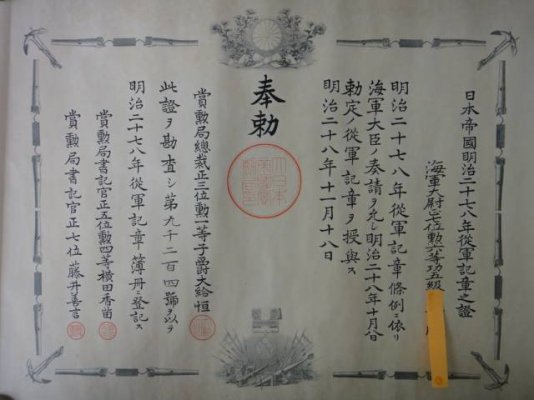 日本帝國明治二十七八年從軍記章之證
海軍大尉正七位勲六等功五級
明治二十七八年從軍記章條例ニ依リ
海軍大臣ノ奏請ヲ允シ明治二十八年十月八日
勅定ノ從軍記章ヲ授與ス
明治二十八年十一月十八日
奉勅
賞勲局總裁正三位勲一等子爵大給恒
此證ヲ勘査シ第九千二百四號ヲ以テ
明治二十七八年從軍記章ノ簿册ニ登記ス
賞勲局書記官正五位勲四等横田香苗
賞勲局書記官正七位藤井善言